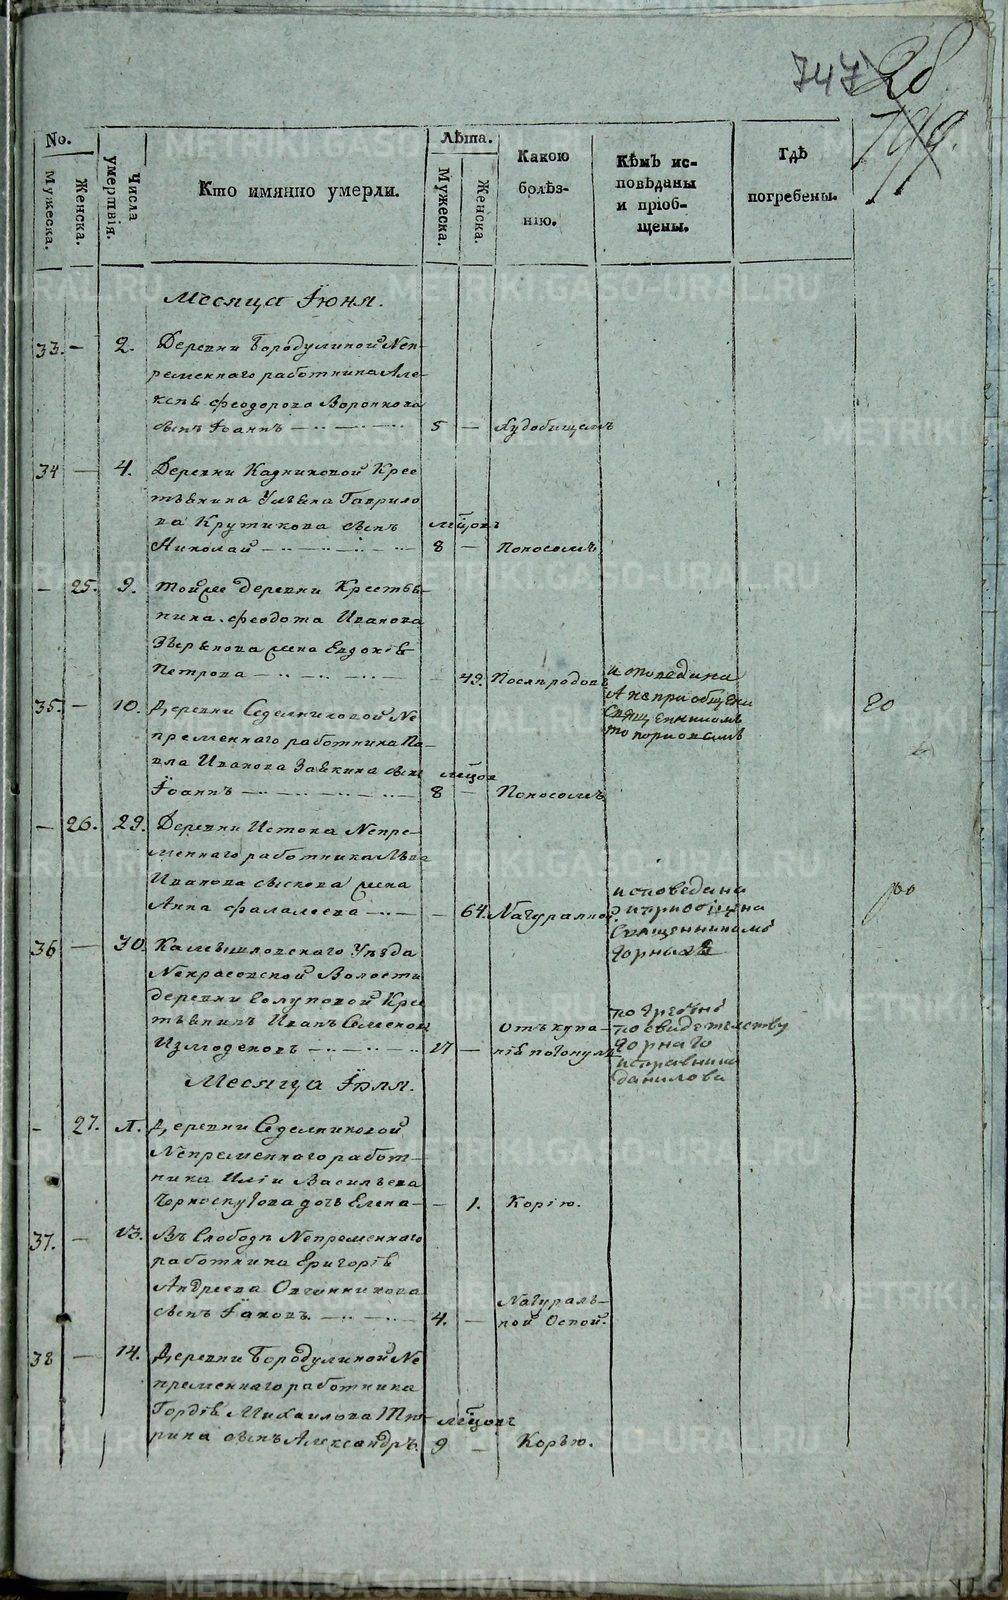 747 28
799.
No.
Мужеска.
Женска.
Числа умертвія.
Кто имянно умерли.
Лѣта.
Мужеска.
Женска.
Какою
болѣз-
нію.
Кѣмъ ис-
повѣданы
и пріоб-
щены.
Гдѣ
погребены.
Месяца Іюня.
33. — 2. Деревни Бородулиной Неп-
ременнаго работника Але-
ксѣя Феодорова Воронкова
сынъ Іоаннъ 5 — Худобищемъ
34 — 4. Деревни Кадниковой Крес
тьянина Ульяна Гаврило
ва Крутикова сынъ мѣсцовъ
Николай 8 — Поносомъ
— 25. 9. Той же деревни Крестья-
нина Феодота Иванова
Зырянова жена Евдокія
Петрова — 49. Послѣродовъ
исповедана
а не приобщена
священникомъ
35. — 10. Деревни Седелниковой Не
пременнаго работника Па-
вла Иванова Заякина сынъ мѣсцов
Іоаннъ 8 — Поносомъ
20
— 26. 29. Деревни Истока Непре-
меннаго работника Льва
Иванова жена
Анна Фалалеева — 64. Натуралной
исповедана
и приобщена
Священникомъ
Чорныхъ
36 — 30. Камышловскаго Уѣзда
Некрасовской Волости
деревни Голуповой Крес
тьянинъ Иванъ Семеновъ
Измоденовъ 17 — отъ купа-
нія потонулъ
погребенъ
по свидетельству
Горнаго
исправника
данилова
Месяца Іюля.
— 27. 11. Деревни Седелниковой
Непременнаго работ-
ника Иліи Васильева
Черноскутова дочь Елена — 1. Корію.
37. — 13. Въ Слободѣ Непременнаго
работника Григорія
Андреева Овчинникова
сынъ Іаковъ 4. — Натураль-
ной Оспой.
38 — 14. Деревни Бородулиной Не
пременнаго работника
Гордѣя Михаилова Тю- мѣсцовъ
рина сынъ Александръ. 9 — Корью.
METRIKI.GASO-URAL.RU